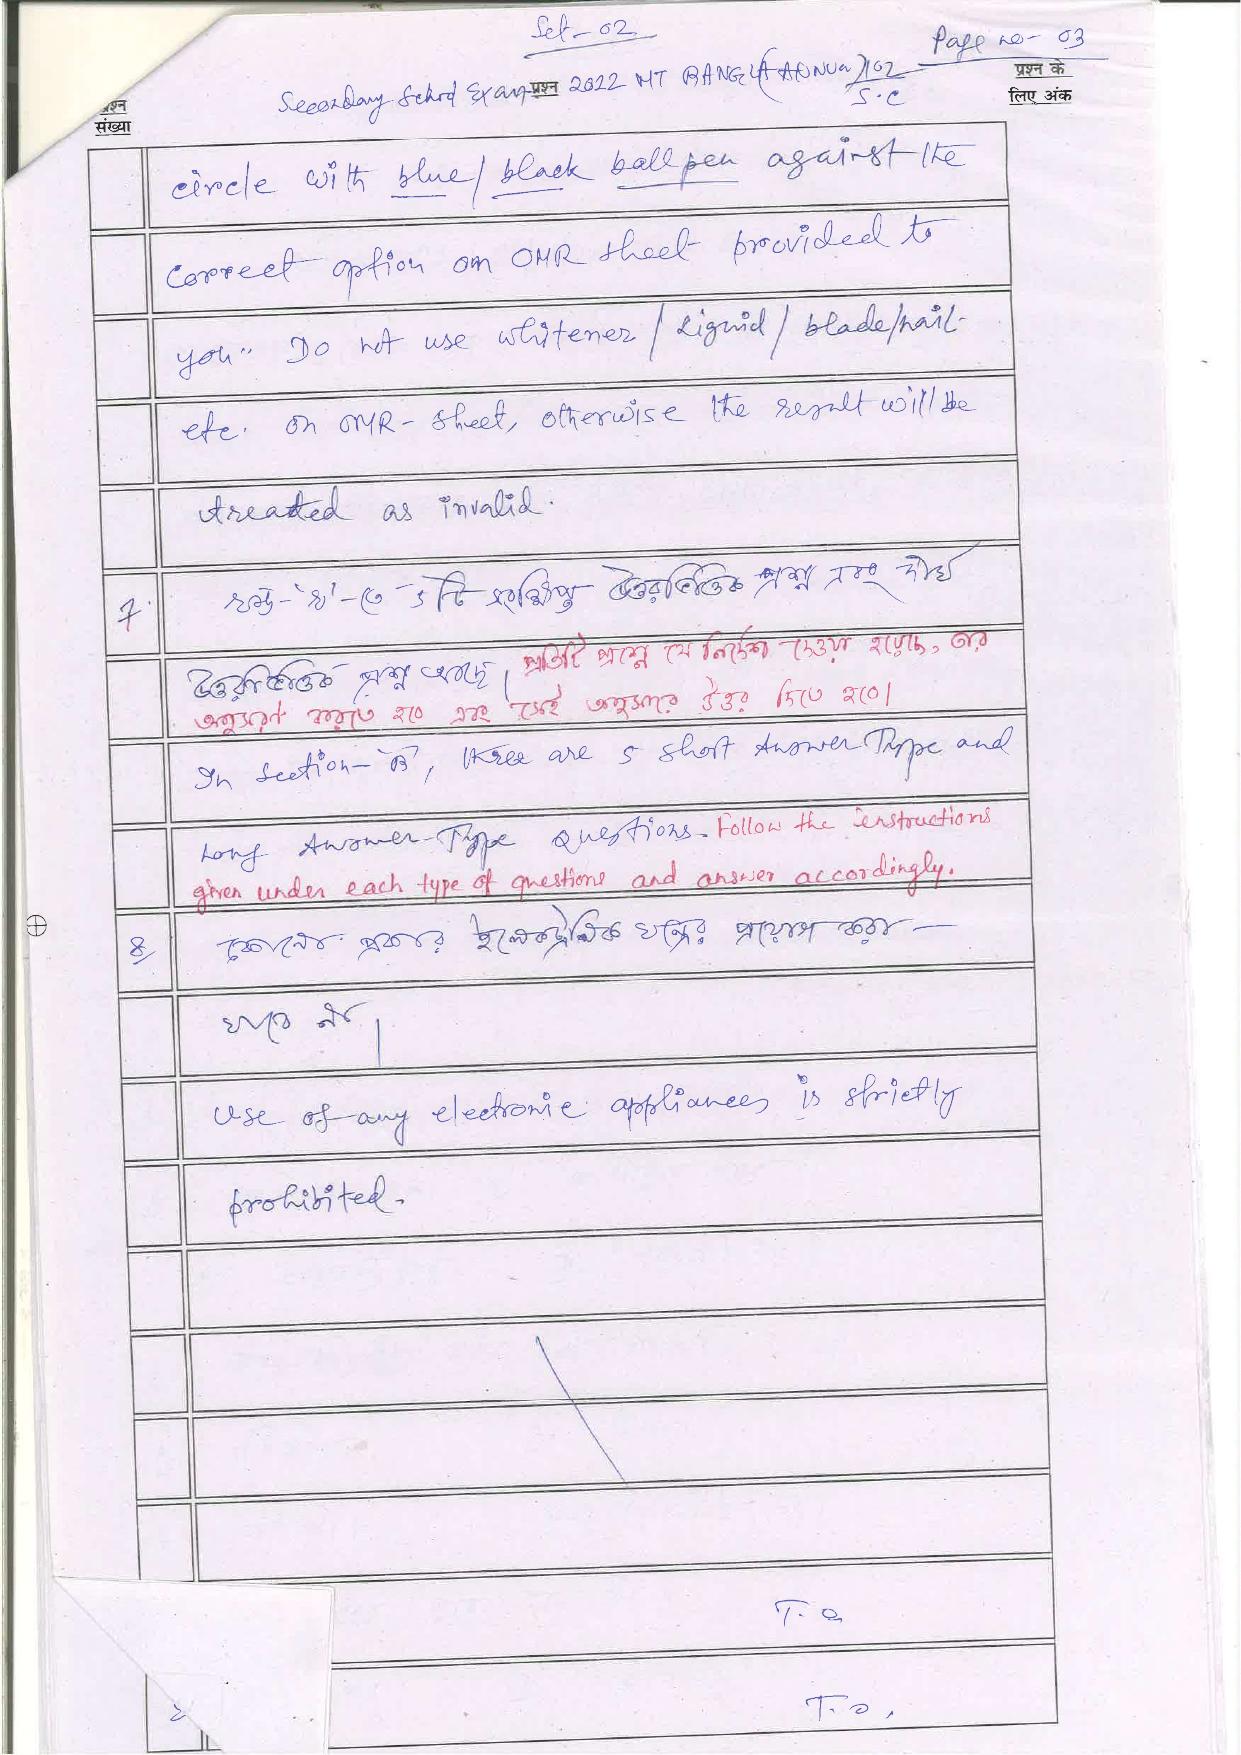 Set-02
Page no- 03
Secondary School Exam- प्रश्न 2022 MT BANGLA (Annual) 102
S.C
प्रश्न के
लिए अंक
प्रश्न
संख्या
circle with blue/black ball pen against the
correct option on OMR sheet provided to
you.. Do not use whitener / Liquid / blade/nail-
etc. on OMR-sheet, otherwise the result will be
treated as invalid.
7. খন্ড-'খ'-তে 5 টি সংক্ষিপ্ত উত্তরভিত্তিক প্রশ্ন এবং দীর্ঘ
উত্তরভিত্তিক প্রশ্ন আছে। প্রতিটি প্রশ্নে যে নির্দেশ দেওয়া হয়েছে, তার
অনুসরণ করতে হবে এবং সেই অনুসারে উত্তর দিতে হবে।
In Section-'B', there are 5 short Answer Type and
Long Answer-Type Questions. Follow the instructions
given under each type of questions and answer accordingly.
8. কোনো প্রকার ইলেকট্রনিক যন্ত্রের প্রয়োগ করা —
যাবে না।
Use of any electronic appliances is strictly
prohibited.
T.O
T.O.